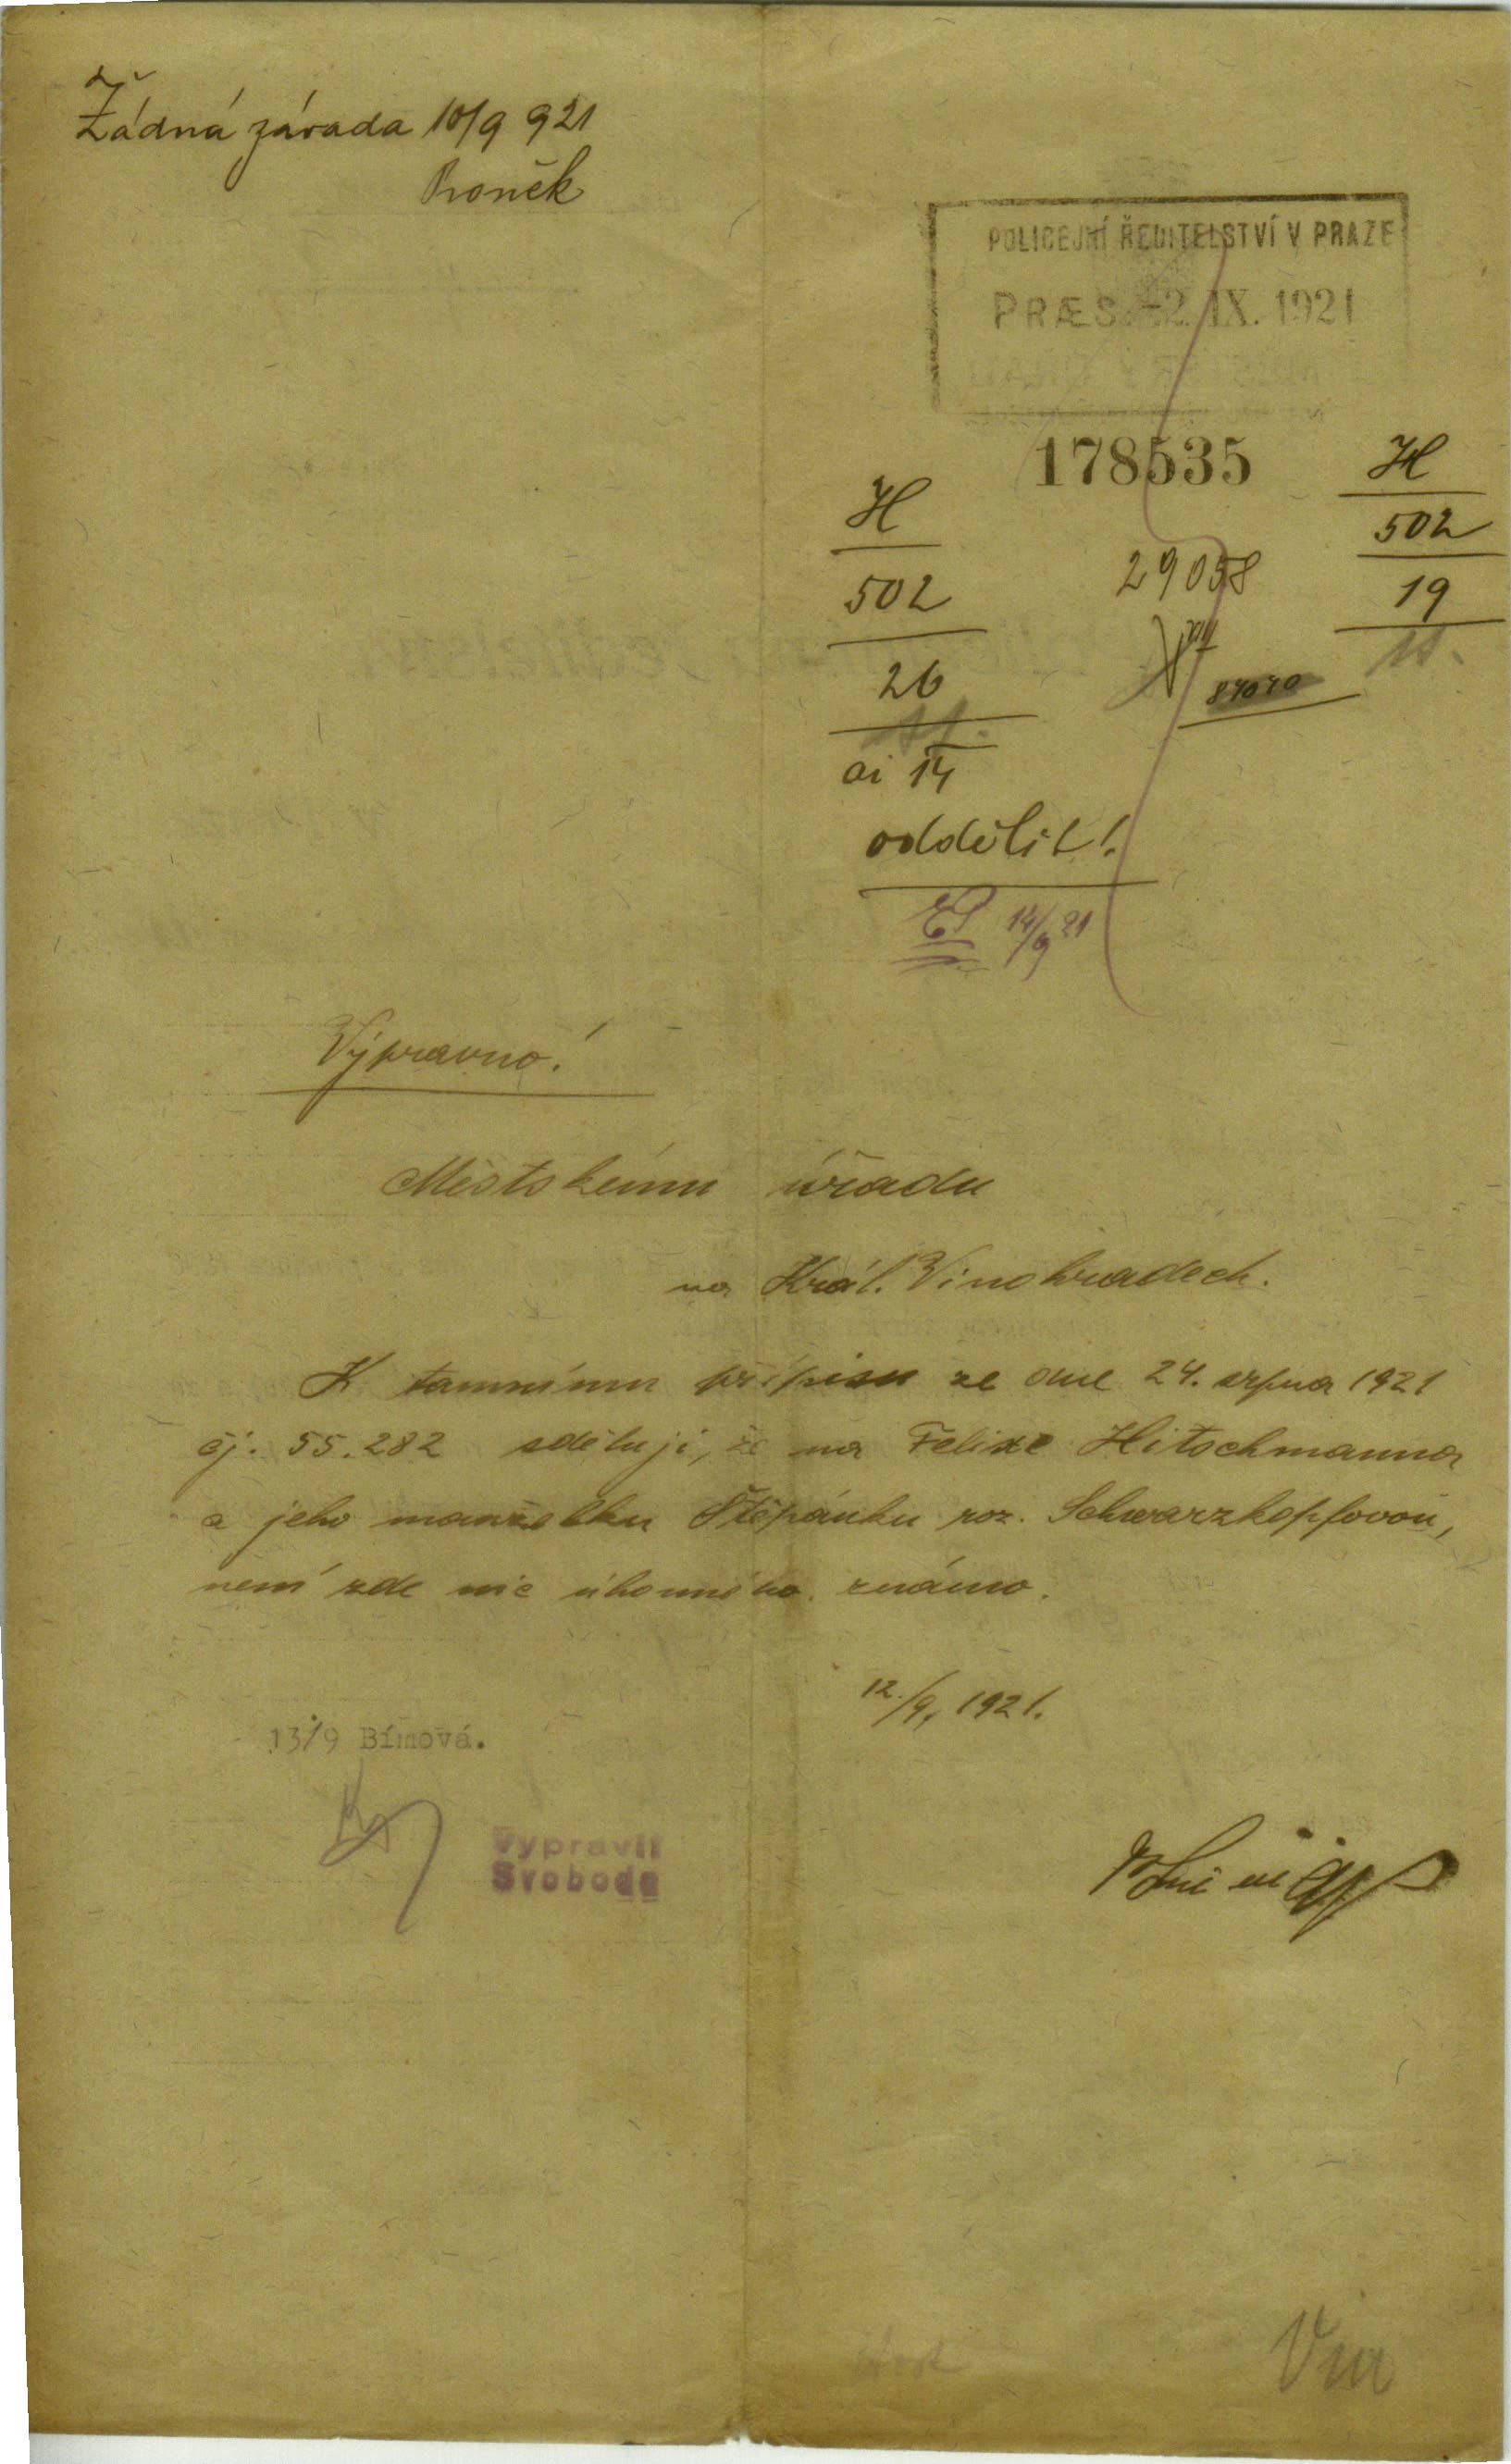 Žádná závada 10/9 921
Roněk
POLICEJNÍ ŘEDITELSTVÍ V PRAZE
PRÆS. -2. IX. 1921
178535
H
502
19
H
502
26
29058
VIII
87070
ai 14
oddělit!
14/9 21
Výpravno!
Městskému úřadu
na Král. Vinohradech.
K tamnímu přípisu ze dne 24. srpna 1921
čj. 55.282 sděluji, že na Felixe Hitschmanna
a jeho manželku Štěpánku roz. Schwarzkopfovou,
není zde nic úhonného známo.
12./9. 1921.
13/9 Bímová.
Vypravil
Svoboda